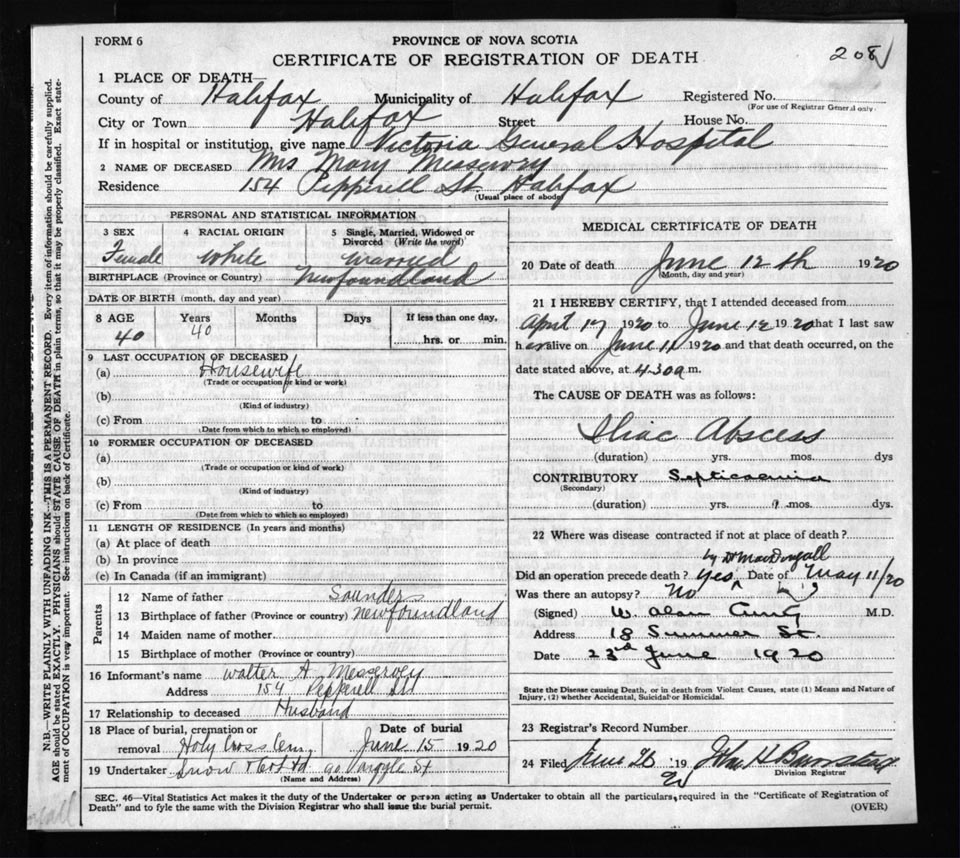 FORM 6
PROVINCE OF NOVA SCOTIA
208
CERTIFICATE OF REGISTRATION OF DEATH
1 PLACE OF DEATH—
County of Halifax Municipality of Halifax Registered No.
(For use of Registrar General only)
City or Town Halifax Street House No.
If in hospital or institution, give name Victoria General Hospital
2 NAME OF DECEASED Mrs Mary Meservey
Residence 154 Pepperell St. Halifax
(Usual place of abode)
PERSONAL AND STATISTICAL INFORMATION
3 SEX 4 RACIAL ORIGIN 5 Single, Married, Widowed or Divorced (Write the word)
Female White Married
BIRTHPLACE (Province or Country) Newfoundland
DATE OF BIRTH (month, day and year)
8 AGE Years Months Days If less than one day,
40 40 hrs. or min.
9 LAST OCCUPATION OF DECEASED
(a) Housewife
(Trade or occupation or kind or work)
(b)
(Kind of industry)
(c) From to
(Date from which to which so employed)
10 FORMER OCCUPATION OF DECEASED
(a)
(Trade or occupation or kind of work)
(b)
(Kind of industry)
(c) From to
(Date from which to which so employed)
11 LENGTH OF RESIDENCE (In years and months)
(a) At place of death
(b) In province
(c) In Canada (if an immigrant)
Parents
12 Name of father Saunders
13 Birthplace of father (Province or country) Newfoundland
14 Maiden name of mother
15 Birthplace of mother (Province or country)
16 Informant's name Walter A Meservey
Address 154 Pepperell St
17 Relationship to deceased Husband
18 Place of burial, cremation or removal Holy Cross Cem. Date of burial June 15 1920
19 Undertaker Snow & Co Ltd 90 Argyle St
(Name and Address)
MEDICAL CERTIFICATE OF DEATH
20 Date of death June 12th 1920
(Month, day and year)
21 I HEREBY CERTIFY, that I attended deceased from
April 17 1920 to June 12 1920 that I last saw
her alive on June 11 1920 and that death occurred, on the
date stated above, at 4.30 a.m.
The CAUSE OF DEATH was as follows:
Iliac Abscess
(duration) yrs. mos. dys
CONTRIBUTORY Septicaemia
(Secondary)
(duration) yrs. ? mos. dys.
22 Where was disease contracted if not at place of death?
by Dr MacDougall
Did an operation precede death? Yes Date of May 11/20
Was there an autopsy? No
(Signed) W. Alan Curry M.D.
Address 18 Summer St.
Date 23rd June 1920
State the Disease causing Death, or in death from Violent Causes, state (1) Means and Nature of
Injury, (2) whether Accidental, Suicidal or Homicidal.
23 Registrar's Record Number
24 Filed June 26 19 20 John H Barnstead
Division Registrar
SEC. 46—Vital Statistics Act makes it the duty of the Undertaker or person acting as Undertaker to obtain all the particulars required in the "Certificate of Registration of
Death" and to fyle the same with the Division Registrar who shall issue the burial permit. (OVER)
N.B.—WRITE PLAINLY WITH UNFADING INK—THIS IS A PERMANENT RECORD. Every item of information should be carefully supplied.
AGE should be stated EXACTLY. PHYSICIANS should STATE CAUSE OF DEATH in plain terms, so that it may be properly classified. Exact statement
of OCCUPATION is very important. See instructions on back of Certificate.